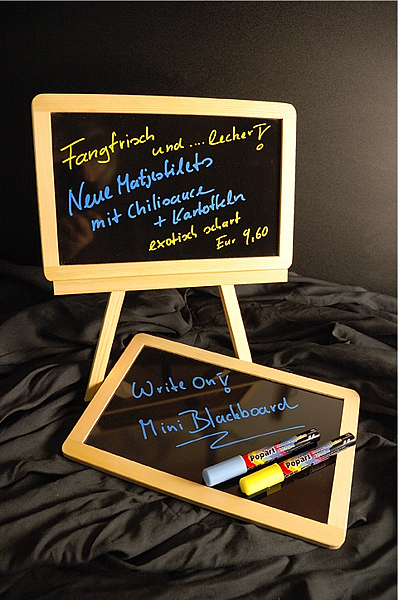 Fangfrisch
und .... lecker!
Neue Matjesfilets
mit Chilisauce
+ Kartoffeln
exotisch scharf
Eur 9,60
Write On!
Mini Blackboard
Popart
Popart